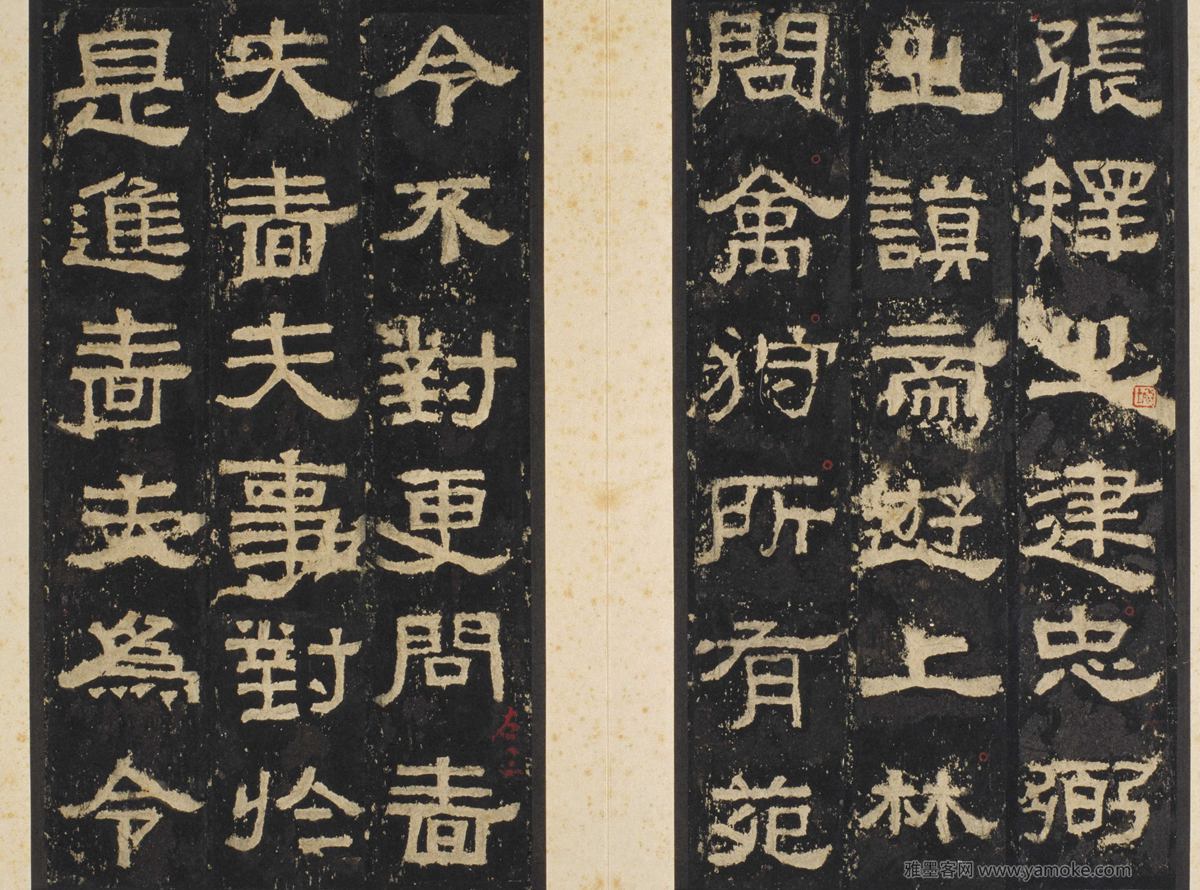 張釋之建忠弼
之謨帝遊上林
問禽狩所有苑
令不對更問嗇
夫嗇夫事對於
是進嗇夫為令
雅墨客网 www.yamoke.com